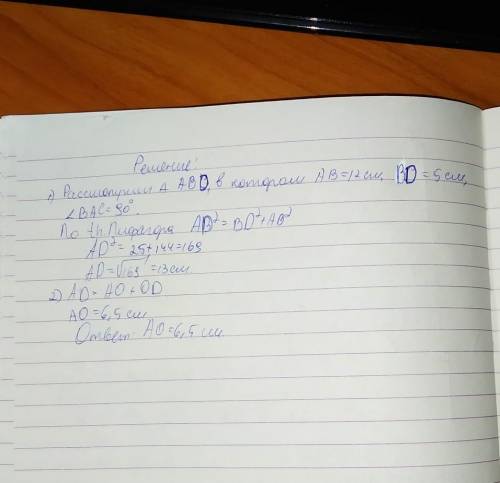 Решение:
1) Рассмотрим Δ ABD, в котором AB=12см, BD=5см,
∠BAC=90°.
По th.Пифагора AD²=BD²+AB²
AD²=25+144=169
AD=√169=13см
2) AD=AO+OD
AO=6,5 см
Ответ: AO=6,5 см